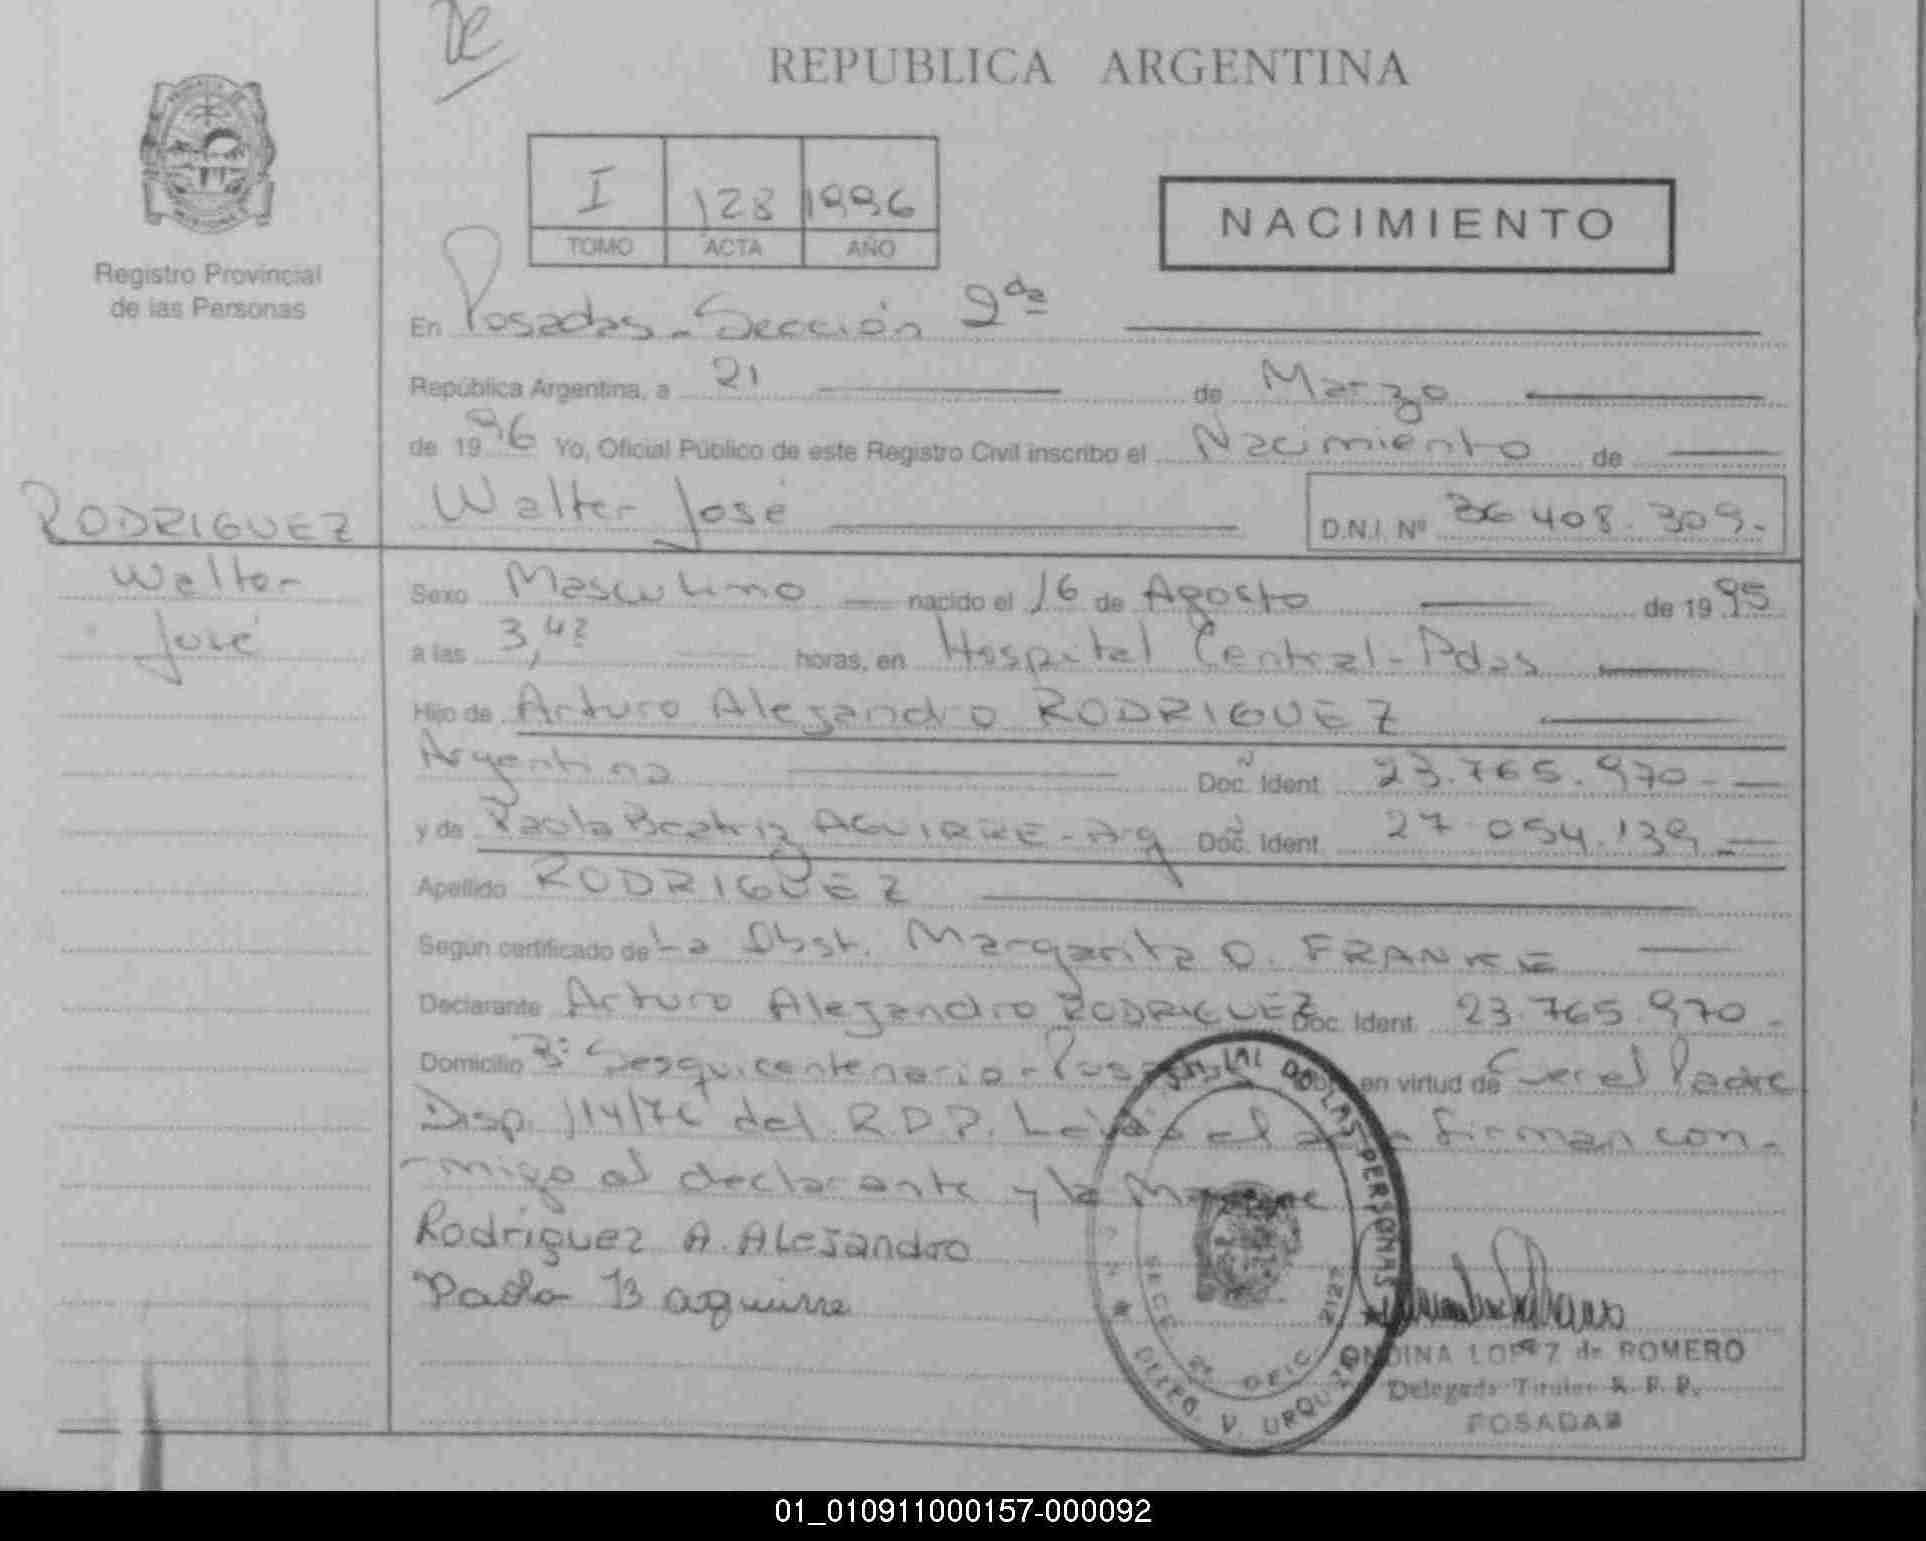 De
REPUBLICA ARGENTINA
I 128 1996
TOMO ACTA AÑO
NACIMIENTO
Registro Provincial
de las Personas
En Posadas - Sección 2da
República Argentina, a 21 de Marzo
de 1996 Yo, Oficial Público de este Registro Civil inscribo el Nacimiento de
Walter José D.N.I. Nº 36 408. 309.-
RODRIGUEZ
Walter
José
Sexo Masculino nacido el 16 de Agosto de 1995
a las 3,42 horas, en Hospital Central - Pdas
Hijo de Arturo Alejandro RODRIGUEZ
Argentino Doc. Ident. 23.765.970-
y de Paola Beatriz AGUIRRE - Arg Doc. Ident. 27 054.139-
Apellido RODRIGUEZ
Según certificado de La Obst. Margarita O. FRANKE
Declarante Arturo Alejandro RODRIGUEZ Doc. Ident. 23.765.970-
Domicilio Bº Sesquicentenario - en virtud de Ser el Padre
Disp. 114/76 del R.D.P. el firman con-
-migo el declarante y la
Rodriguez A. Alejandro
Paola B aguirre
DE LAS PERSONAS
SECC. 2ª OFIC. 2127
DELEG. V. URQUIZA
ONDINA LOPEZ de ROMERO
Delegada Titular R. P. P.
POSADAS
01_010911000157-000092